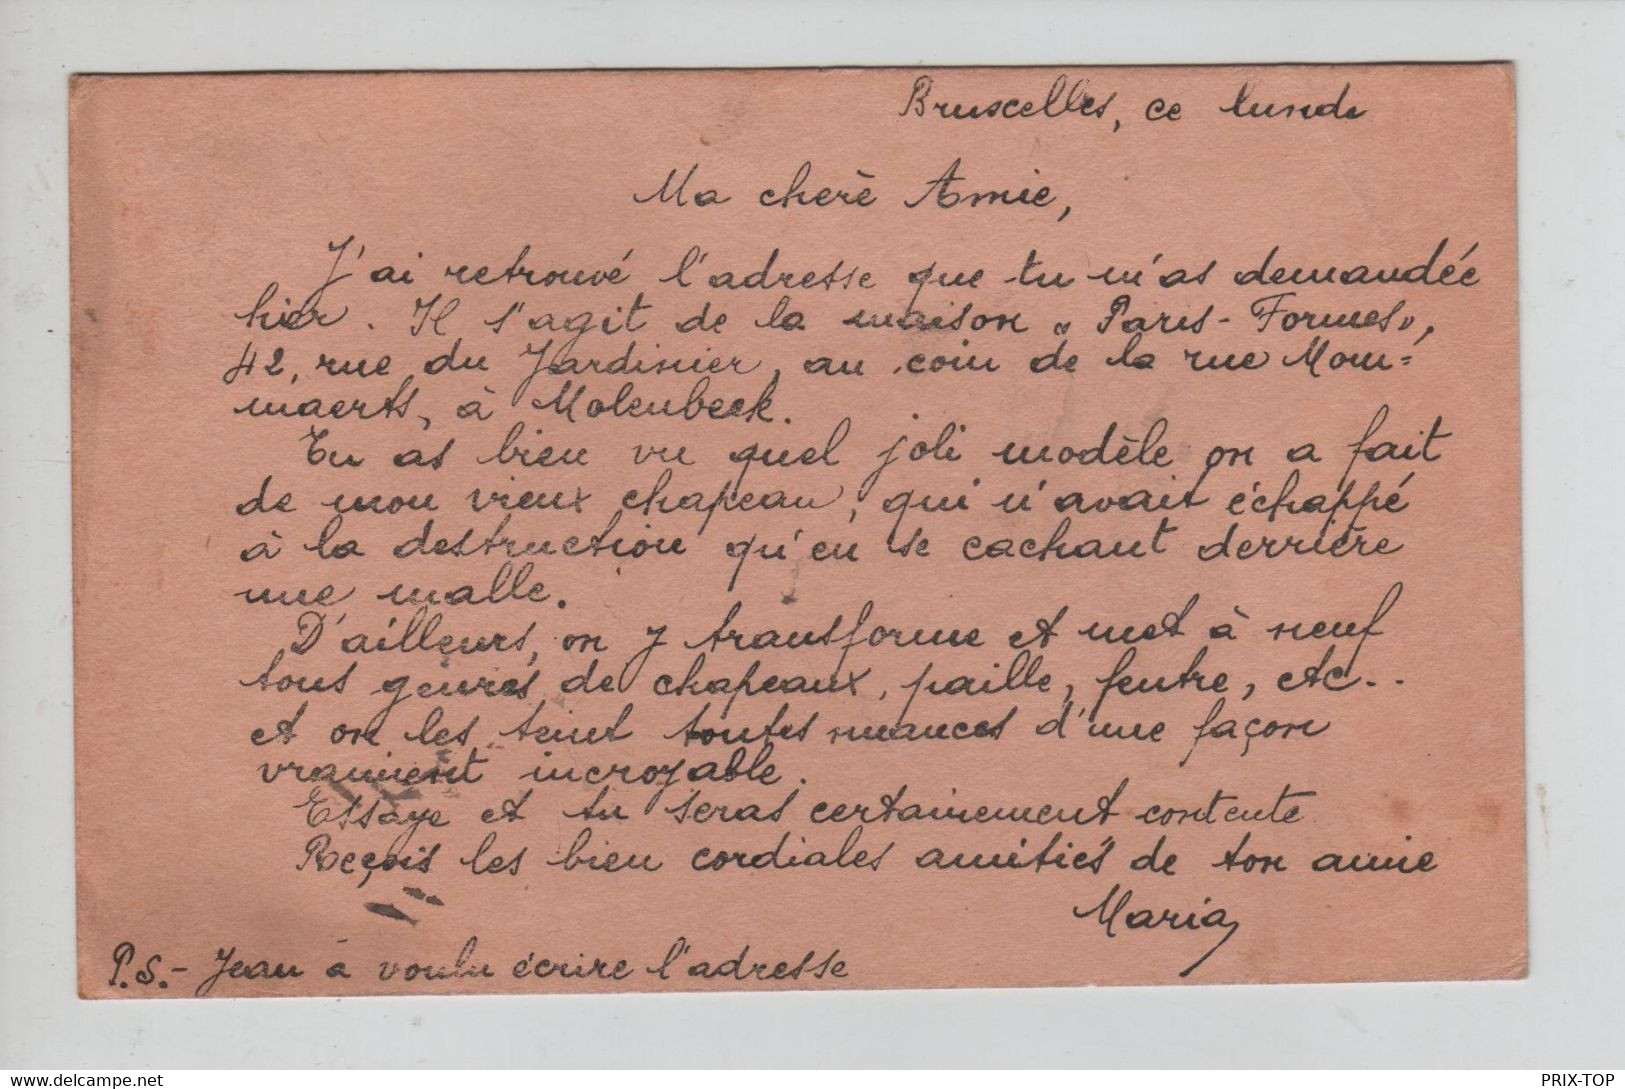 Bruxelles, ce lundi
Ma cherè Amie,
J'ai retrouvé l'adresse que tu m'as demandée
hier. Il s'agit de la maison « Paris-Formes »,
42, rue du Jardinier, au coin de la rue Mom=
maerts, à Molenbeek.
Tu as bien vu quel joli modèle on a fait
de mon vieux chapeau, qui n'avait échappé
à la destruction qu'en se cachant derrière
une malle.
D'ailleurs, on y transforme et met à neuf
tous genres de chapeaux, paille, feutre, etc..
et on les teint toutes nuances d'une façon
vraiment incroyable.
Essaye et tu seras certainement contente
Reçois les bien cordiales amitiés de ton amie
Maria
P.S.- Jean à voulu écrire l'adresse
PRIX-TOP
www.delcampe.net